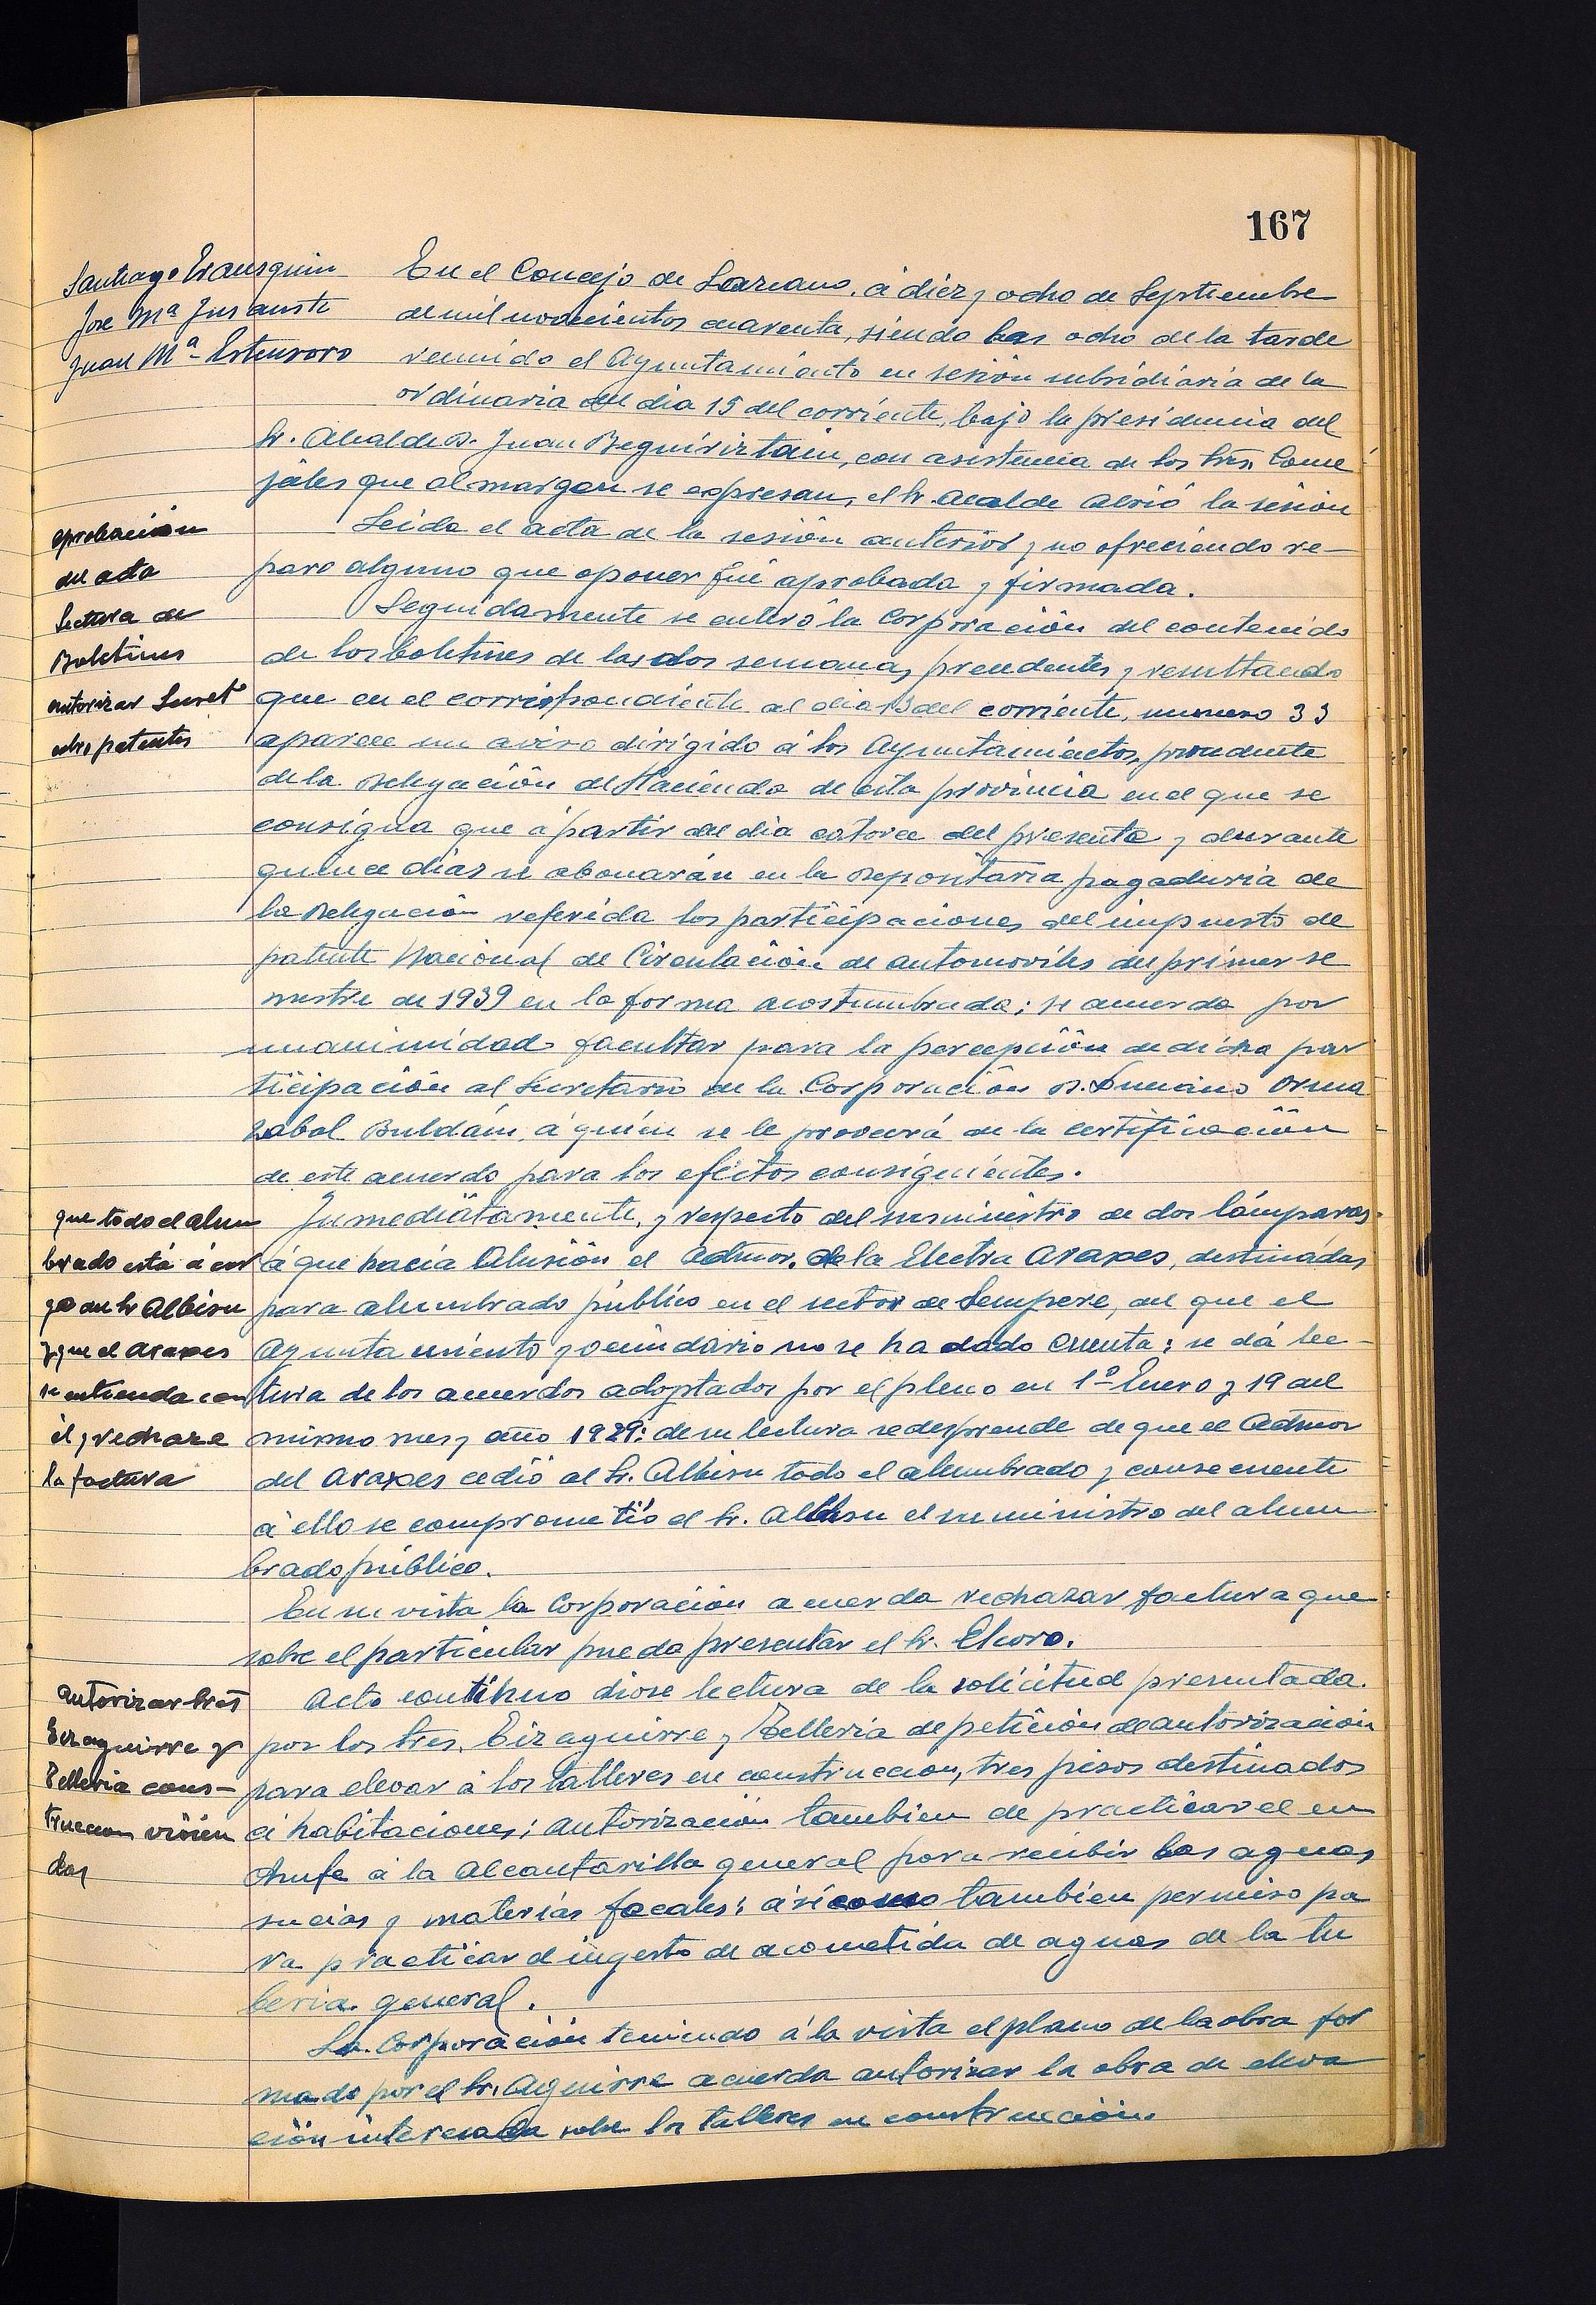 167
Santiago Erausquin
Jose Mª Insausti
Juan Mª Estensoro
En el Concejo de Lazcano, á diez y ocho de Septiembre
de mil novecientos cuarenta, siendo las ocho de la tarde
reunido el Ayuntamiento en sesión subsidiaria de la
ordinaria del dia 15 del corriente, bajo la presidencia del
Sr. Alcalde D. Juan Beguiriztain, con asistencia de los Sres. Conce
jales que al margen se expresan, el Sr. Alcalde abrió la sesión
aprobación
del acta
Leida el acta de la sesión anterior y no ofreciendo re-
paro alguno que oponer fué aprobada y firmada.
Lectura de
Boletines
autorizar Secretº
cobro patentes
Seguidamente se enteró la Corporación del contenido
de los boletines de las dos semanas precedentes y resultando
que en el correspondiente al dia 13 del corriente, numero 33
aparece un aviso dirigido á los Ayuntamientos, procedente
de la Delegación de Hacienda de esta provincia en el que se
consigna que á partir del dia catorce del presente y durante
quince dias se abonarán en la Depositaria pagaduria de
la Delegación referida las participaciones del impuesto de
patente Nacional de Circulación de automoviles del primer se
mestre de 1939 en la forma acostumbrada; se acuerda por
unanimidad facultar para la percepción de dicha par
ticipación al Secretario de la Corporación D. Luciano Orma
zabal Buldáin, á quién se le proveerá de la certificación
de este acuerdo para los efectos consiguientes.
que todo el alum
brado está á car
go del Sr Albisu
y que el Araxes
se entienda con
él y rechaza
la factura
Inmediatamente, y respecto del suministro de dos lámparas
á que hacia alusión el Admor. de la Electra Araxes, destinadas
para alumbrado público en el sector de Sempere, del que el
Ayuntamiento y vecindario no se ha dado cuenta; se dá lec-
tura de los acuerdos adoptados por el pleno en 1º Enero y 19 del
mismo mes y año 1929; de su lectura se desprende de que el Admor
del Araxes cedió al Sr. Albisu todo el alumbrado y consecuente
á ello se comprometió el Sr. Albisu el suministro del alum
brado público.
En su vista la Corporación acuerda rechazar factura que
sobre el particular pueda presentar el Sr. Elcoro.
autorizar Sres
Eizaguirre y
Telleria cons-
truccion vivien
das
Acto continuo diose lectura de la solicitud presentada
por los Sres. Eizaguirre y Telleria de petición de autorización
para elevar á los talleres en construccion, tres pisos destinados
á habitaciones; autorización tambien de practicar el en
chufe á la alcantarilla general para recibir las aguas
sucias y materias fecales; ási como tambien permiso pa
ra practicar el ingerto de acometida de aguas de la tu
beria general.
La Corporación teniendo á la vista el plano de la obra for
mado por el Sr. Aguirre acuerda autorizar la obra de eleva
ción interesada sobre los talleres en construcción.